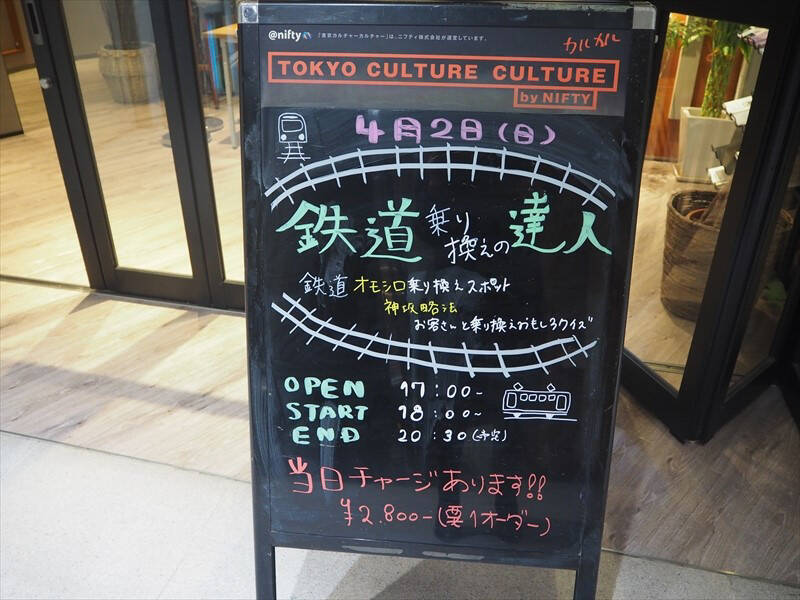 @nifty 「東京カルチャーカルチャー」は、ニフティ株式会社が運営しています。
カルカル
TOKYO CULTURE CULTURE
by NIFTY
4月2日(日)
鉄道乗り換えの達人
鉄道オモシロ乗り換えスポット
神攻略法
お客さんと乗り換えおもしろクイズ
OPEN 17:00~
START 18:00~
END 20:30(予定)
当日チャージあります!!
¥2.800-(要1オーダー)